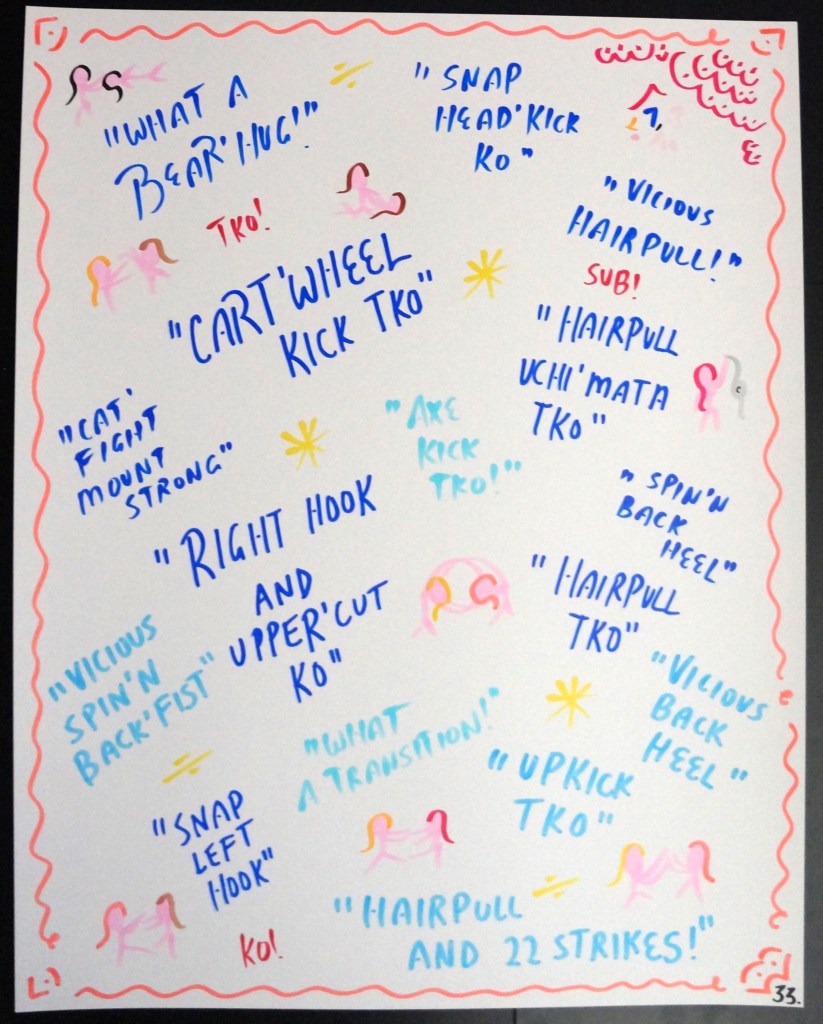 "WHAT A
BEAR'HUG!"
"SNAP
HEAD'KICK
KO"
TKO!
"VICIOUS
HAIRPULL!"
SUB!
"CART'WHEEL
KICK TKO"
"HAIRPULL
UCHI'MATA
TKO"
"CAT'
FIGHT
MOUNT
STRONG"
"AXE
KICK
TKO!"
"SPIN'N
BACK
HEEL"
"RIGHT HOOK
AND
UPPER'CUT
KO"
"HAIRPULL
TKO"
"VICIOUS
SPIN'N
BACK'FIST"
"VICIOUS
BACK
HEEL"
"WHAT
A TRANSITION!"
"UPKICK
TKO"
"SNAP
LEFT
HOOK"
KO!
"HAIRPULL
AND 22 STRIKES!"
33.